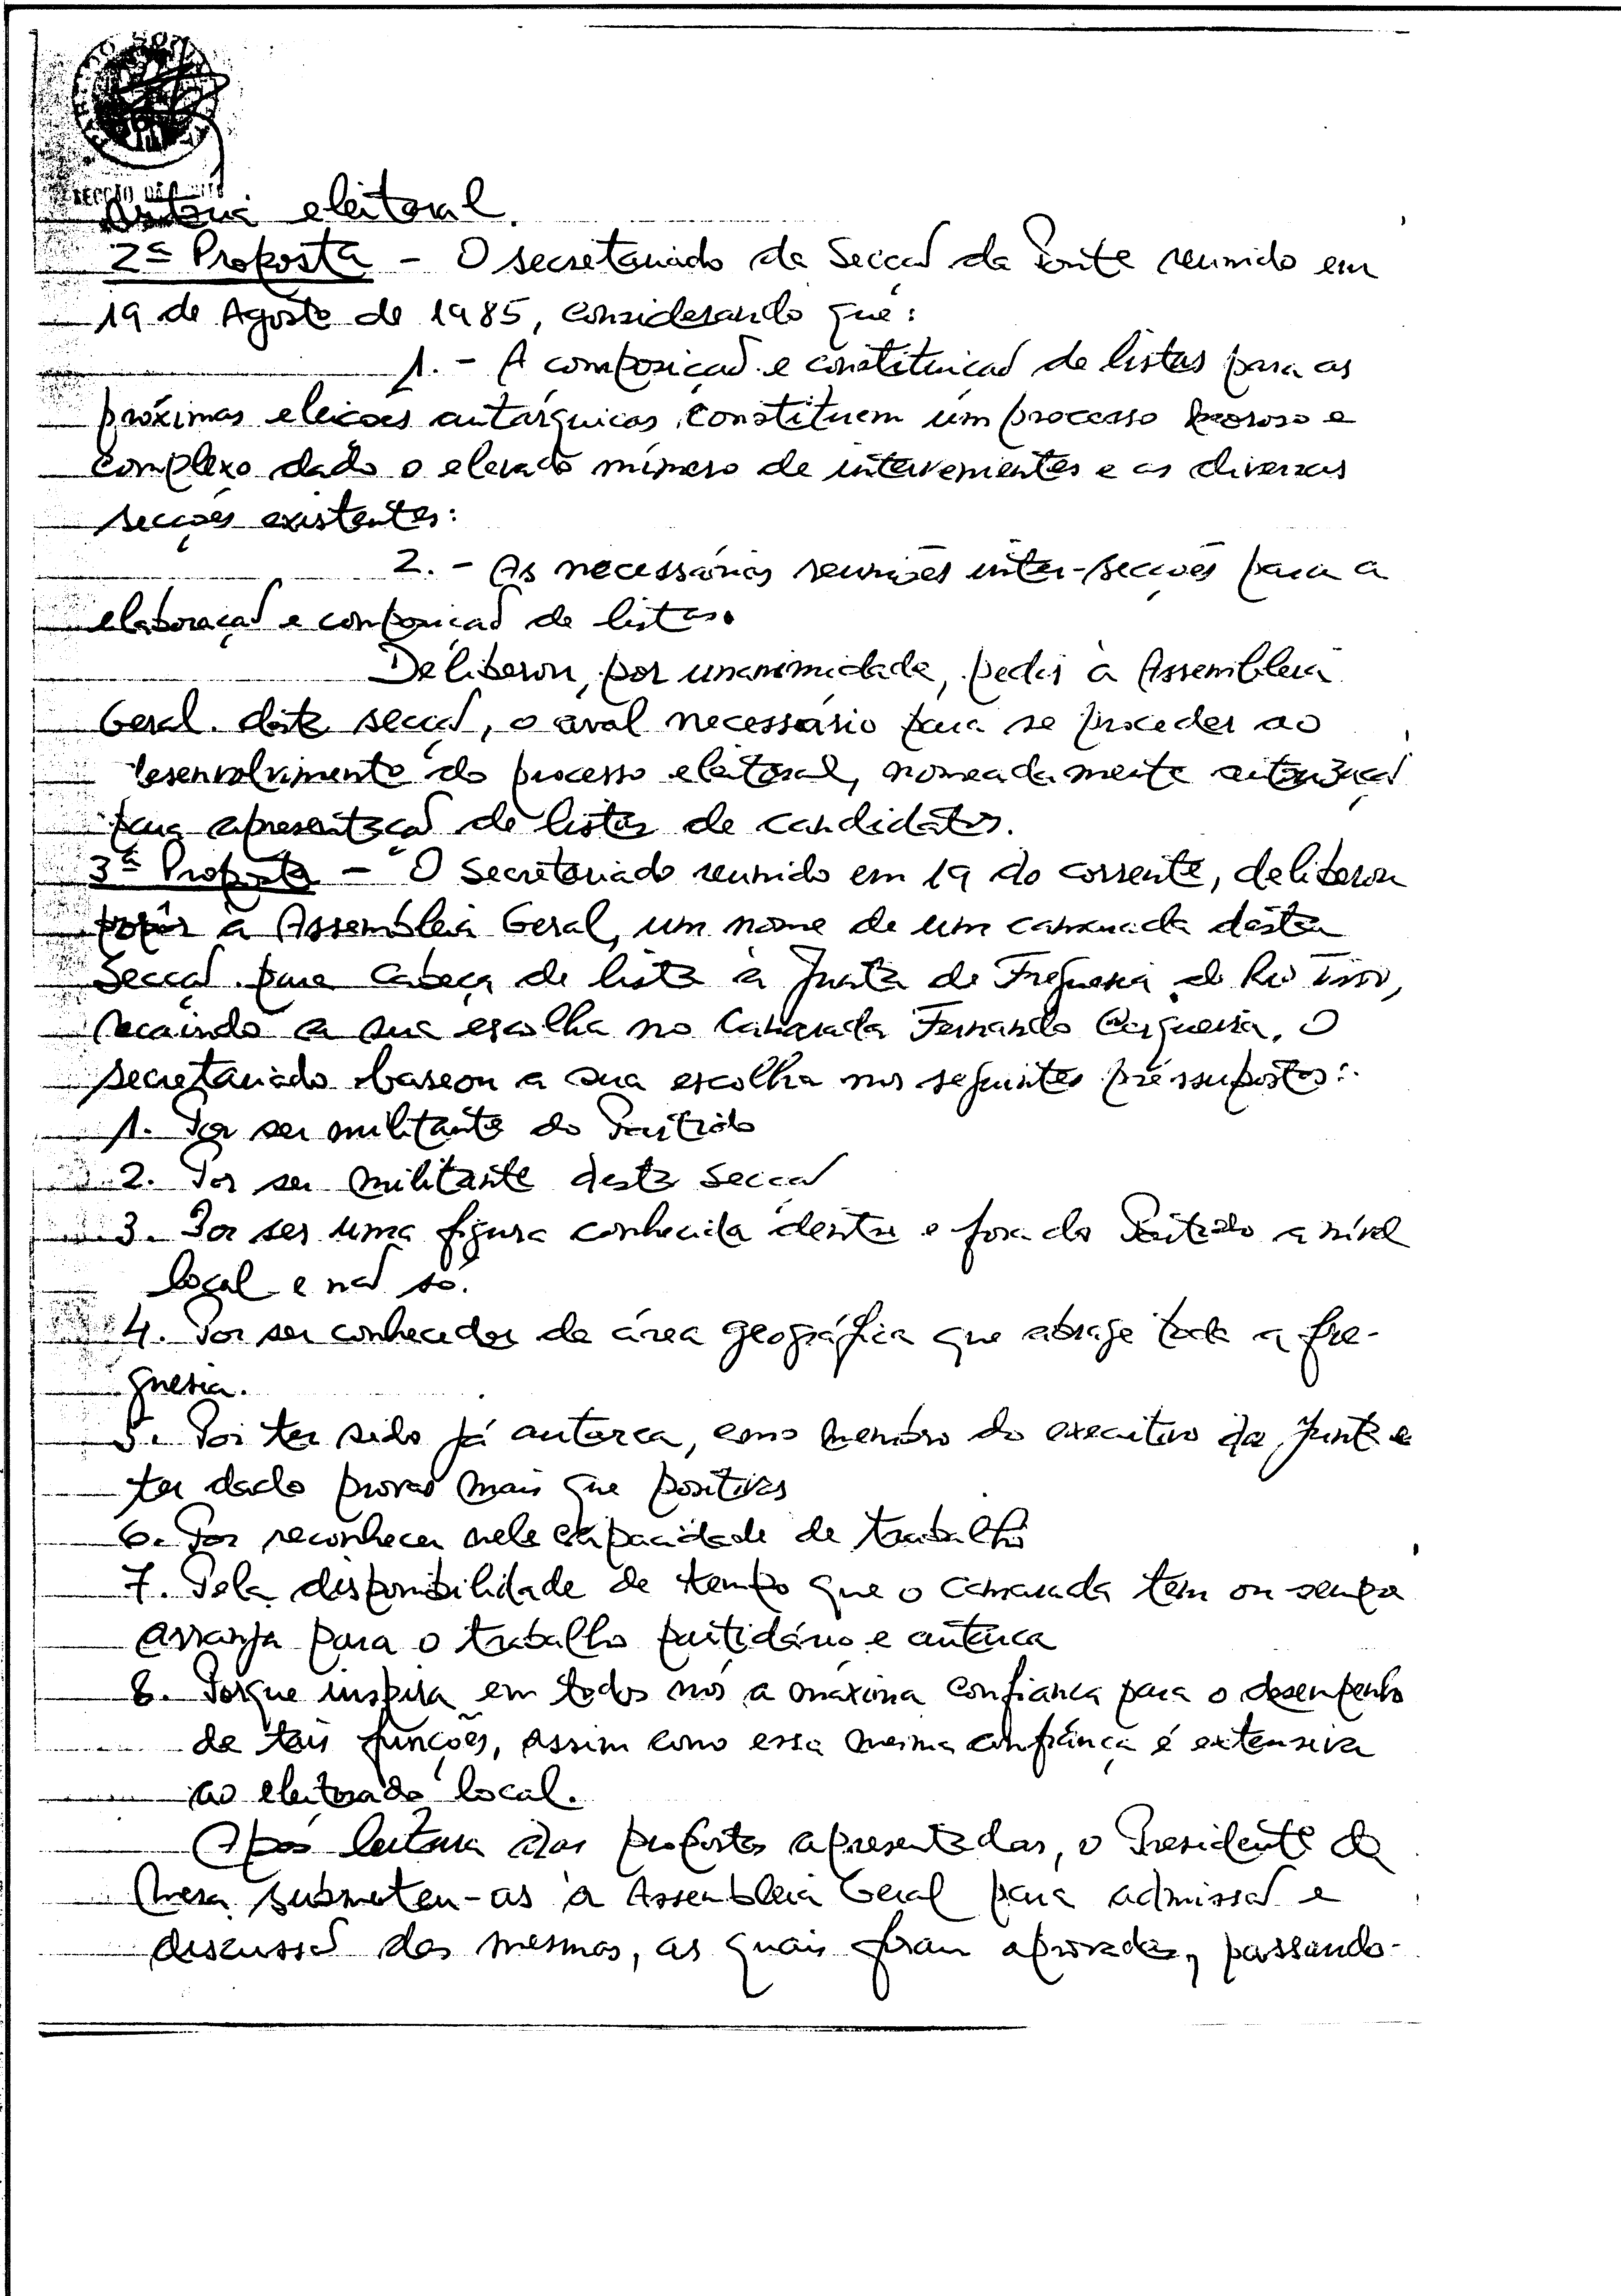 eleitoral.
2ª Proposta - O secretariado da Secção da Ponte reunido em
19 de Agosto de 1985, considerando que:
1. - A composição e constituição de listas para as
próximas eleições autárquicas, constituem um processo moroso e
complexo dado o elevado número de intervenientes e as diversas
secções existentes:
2. - As necessárias reuniões inter-secções para a
elaboração e composição de listas.
Deliberou, por unanimidade, pedir à Assembleia
Geral desta secção, o aval necessário para se proceder ao
desenvolvimento do processo eleitoral, nomeadamente autorização
para apresentação de listas de candidatos.
3ª Proposta - O Secretariado reunido em 19 do corrente, deliberou
propôr à Assembleia Geral, um nome de um camarada desta
Secção para cabeça de lista à Junta de Freguesia do Rio Tinto,
recaindo a sua escolha no Camarada Fernando Cerqueira. O
secretariado baseou a sua escolha nos seguintes pressupostos:
1. Por ser militante do Partido
2. Por ser militante desta Secção
3. Por ser uma figura conhecida dentro e fora do Partido a nível
local e não só.
4. Por ser conhecedor da área geográfica que abrage toda a fre-
guesia.
5. Por ter sido já autarca, como membro do executivo da Junta e
ter dado provas mais que positivas
6. Por reconhecer nele capacidade de trabalho
7. Pela disponibilidade de tempo que o camarada tem ou sempre
arranja para o trabalho partidário e autarca
8. Porque inspira em todos nós a máxima confiança para o desempenho
de tais funções, assim como essa mesma confiança é extensiva
ao eleitorado local.
Após leitura das propostas apresentadas, o Presidente da
Mesa submeteu-as à Assembleia Geral para admissão e
discussão das mesmas, as quais foram aprovadas, passando-